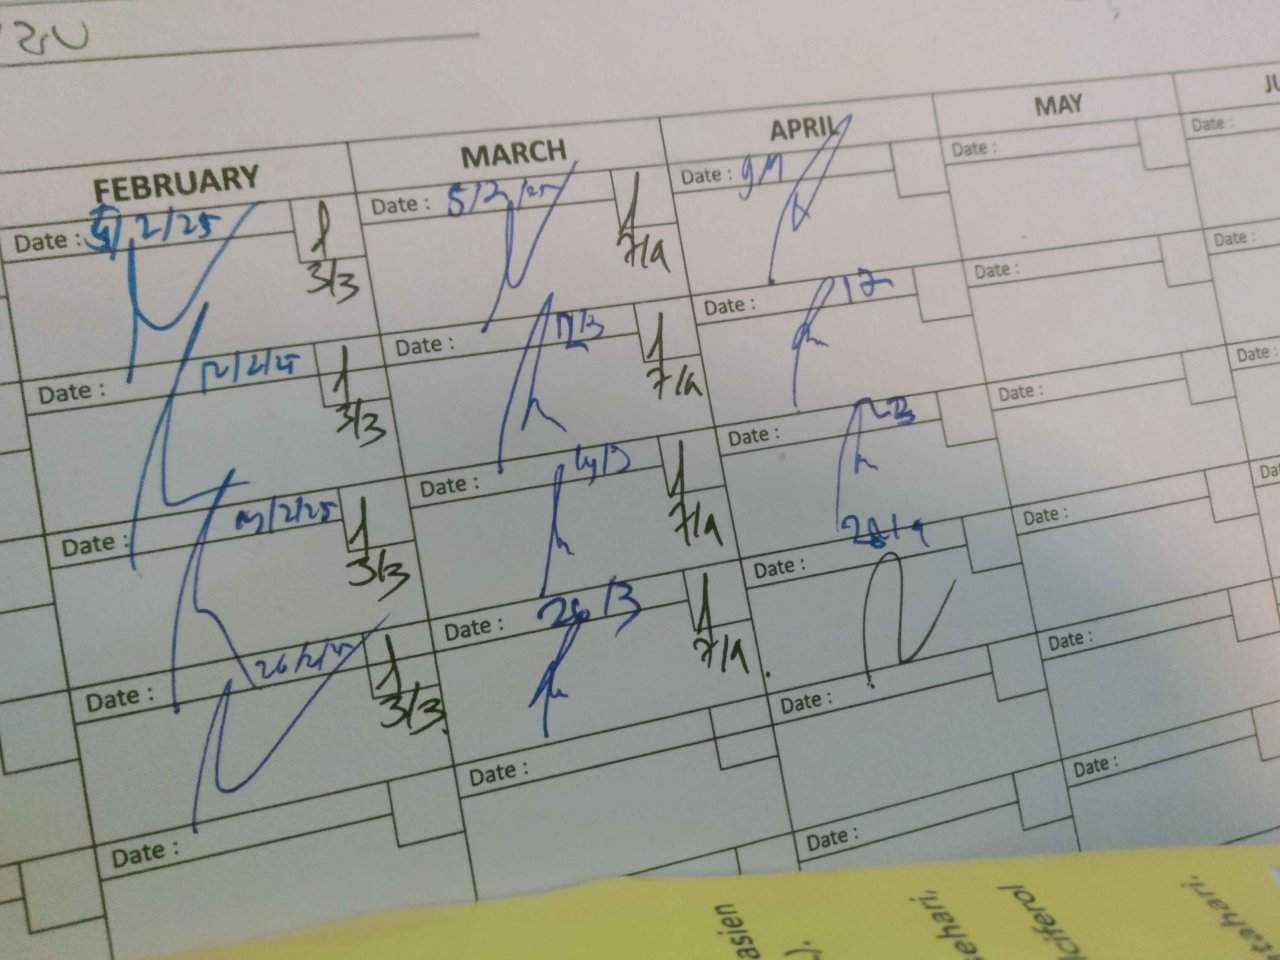 FEBRUARY
MARCH
APRIL
MAY
Date : 5/2/25
3/3
Date : 12/2/25
3/3
Date : 19/2/25
3/3
Date : 26/2/25
3/3
Date :
Date : 5/3/25
7/4
Date : 12/3
7/4
Date : 19/3
7/4
Date : 26/3
7/4
Date :
Date : 9/4
Date :
Date :
Date : 28/4
Date :
Date :
Date :
Date :
Date :
Date :
Date :
Date :
Date :
Date :
Date :
asien
).
ehari,
lciferol
tahari.